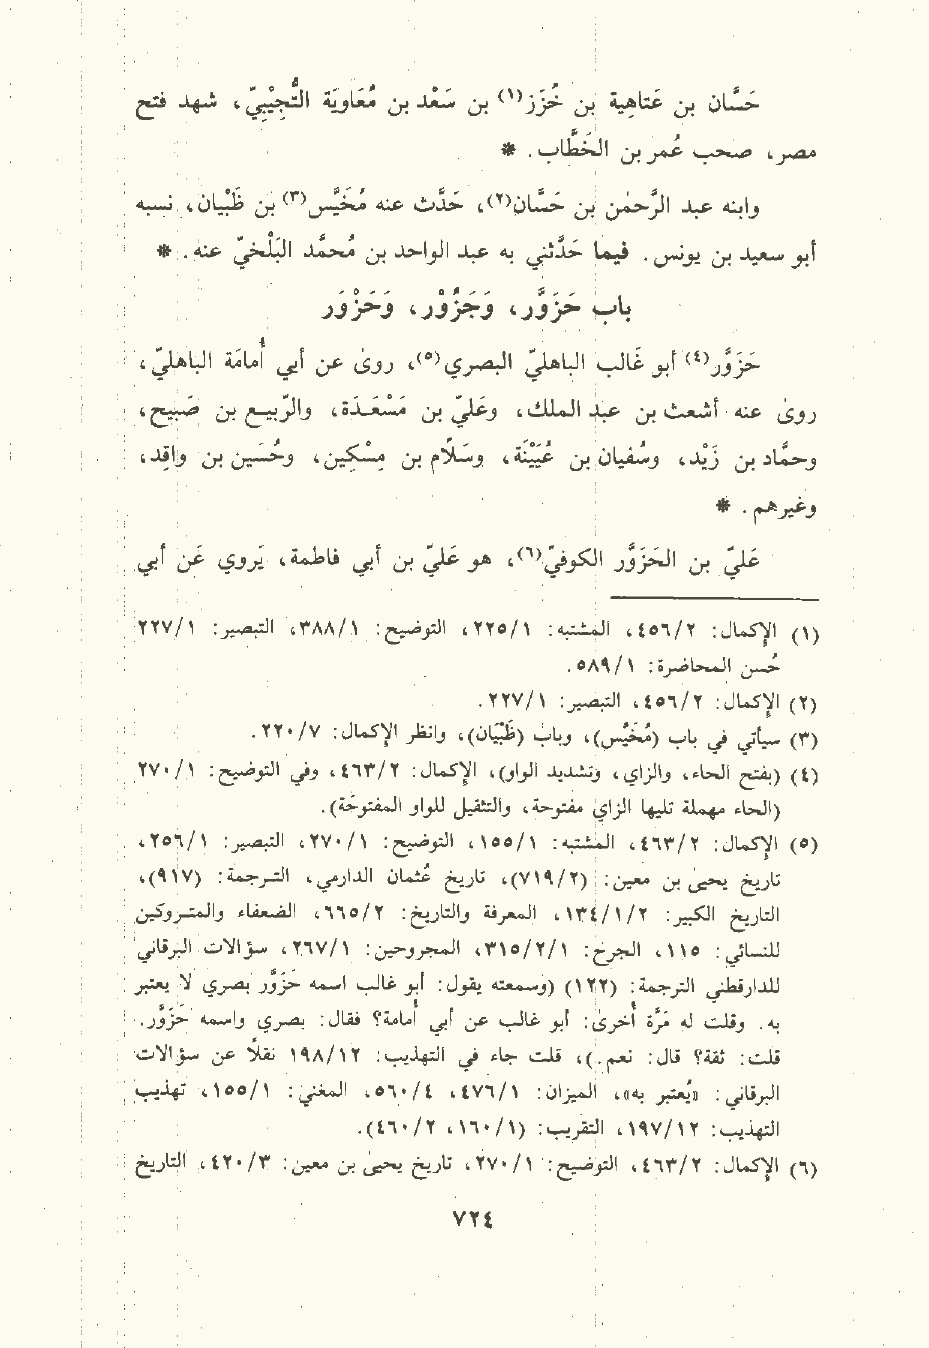 حَسَّان بن عَتاهِية بن خُزَز(١) بن سَعْد بن مُعَاويَة التُّجِيْبِيّ، شهد فتح
مصر، صحب عُمر بن الخَطَّاب. *
وابنه عبد الرَّحمٰن بن حَسَّان(٢)، حَدَّث عنه مُخَيَّس(٣) بن ظَبْيان، نسبه
أبو سعيد بن يونس. فيما حَدَّثني به عبد الواحد بن مُحمَّد البَلْخيّ عنه. *
باب حَزَوَّر، وَجَزُوْر، وَحَزْوَر
حَزَوَّر(٤) أبو غَالب الباهليّ البصري(٥)، روىٰ عن أبي أُمامَة الباهليّ،
روىٰ عنه أشعث بن عبد الملك، وعَليّ بن مَسْعَدَة، والرَّبيع بن صَبيح،
وحمَّاد بن زَيْد، وسُفيان بن عُيَيْنَة، وسَلاَّم بن مِسْكِين، وحُسَين بن واقِد،
وغيرهم. *
عَليّ بن الحَزَوَّر الكوفيّ(٦)، هو عَليّ بن أبي فاطمة، يَروي عَن أبي
(١) الإكمال: ٤٥٦/٢، المشتبه: ٢٢٥/١، التوضيح: ٣٨٨/١، التبصير: ٢٢٧/١
حُسن المحاضرة: ٥٨٩/١.
(٢) الإكمال: ٤٥٦/٢، التبصير: ٢٢٧/١.
(٣) سيأتي في باب (مُخَيَّس)، وباب (ظَبْيَان)، وانظر الإكمال: ٢٢٠/٧.
(٤) (بفتح الحاء، والزاي، وتشديد الواو)، الإكمال: ٤٦٣/٢، وفي التوضيح: ٢٧٠/١
(الحاء مهملة تليها الزاي مفتوحة، والتثقيل للواو المفتوحَة).
(٥) الإكمال: ٤٦٣/٢، المشتبه: ١٥٥/١، التوضيح: ٢٧٠/١، التبصير: ٢٥٦/١،
تاريخ يحيىٰ بن معين: (٧١٩/٢)، تاريخ عُثمان الدارمي، الترجمة: (٩١٧)،
التاريخ الكبير: ١٣٤/١/٢، المعرفة والتاريخ: ٦٦٥/٢، الضعفاء والمتروكين
للنسائي: ١١٥، الجرح: ٣١٥/٢/١، المجروحين: ٢٦٧/١، سؤالات البرقاني
للدارقطني الترجمة: (١٢٢) (وسمعته يقول: أبو غالب اسمه حَزَوَّر بصري لا يعتبر
به. وقلت له مَرَّة أُخرىٰ: أبو غالب عن أبي أُمامة؟ فقال: بصري واسمه حَزَوَّر.
قلت: ثقة؟ قال: نعم.)، قلت جاء في التهذيب: ١٩٨/١٢ نقلاً عن سؤالات
البرقاني: «يُعتبر به»، الميزان: ٤٧٦/١، ٥٦٠/٤، المغني: ١٥٥/١، تهذيب
التهذيب: ١٩٧/١٢، التقريب: (١٦٠/١، ٤٦٠/٢).
(٦) الإكمال: ٤٦٣/٢، التوضيح: ٢٧٠/١، تاريخ يحيىٰ بن معين: ٤٢٠/٣، التاريخ
٧٢٤